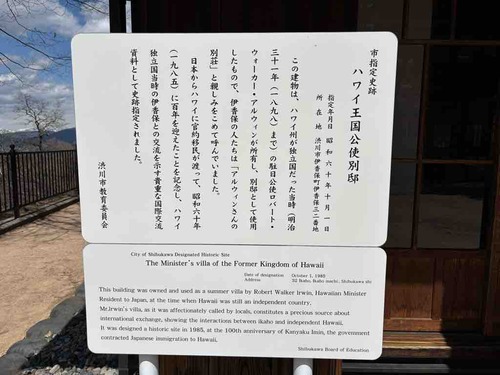 市指定史跡
ハワイ王国公使別邸
指定年月日　昭和六十年十月一日
所在地　渋川市伊香保町伊香保三二番地
この建物は、ハワイ州が独立国だった当時（明治
三十一年（一八九八）まで）の駐日公使ロバート・
ウォーカー・アルウィンが所有し、別邸として使用
したもので、伊香保の人たちは「アルウィンさんの
別荘」と親しみをこめて呼んでいました。
日本からハワイに官約移民が渡って、昭和六十年
（一九八五）に百年を迎えたことを記念し、ハワイ
独立国当時の伊香保との交流を示す貴重な国際交流
資料として史跡指定されました。
渋川市教育委員会
City of Shibukawa Designated Historic Site
The Minister's villa of the Former Kingdom of Hawaii
Date of designation October 1, 1985
Address 32 Ikaho, Ikaho machi, Shibukawa shi
This building was owned and used as a summer villa by Robert Walker Irwin, Hawaiian Minister
Resident to Japan, at the time when Hawaii was still an independent country.
Mr.Irwin's villa, as it was affectionately called by locals, constitutes a precious source about
international exchange, showing the interactions between ikaho and independent Hawaii.
It was designed a historic site in 1985, at the 100th anniversary of Kanyaku Imin, the government
contracted Japanese immigration to Hawaii.
Shibukawa Board of Education